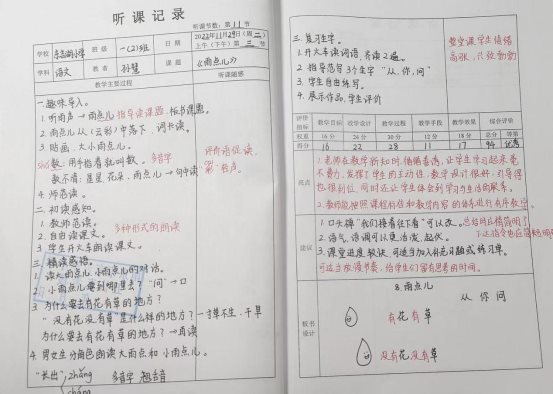 听课记录
听课节数：第11节
学校 班级 一(2)班 日期 2022年11月29日(周二)
上午(下午)第三节
学科 语文 教者 孙慧 课题 《雨点儿》
教学主要过程 听课随感
一.趣味导入。
1. 听雨声→雨点儿 指导读课题，板书课题。
2. 雨点儿从(云彩)中落下，词卡读。
3. 贴画，大小雨点儿。
数：用手指着就叫数。多音字
数不清：星星 花朵、雨点儿→句中读
4. 师范读。
评价语促读，
第一有点。
二.初读感知。
1. 教师范读。
2. 自由读课文。
3. 学生开火车朗读课文。
多种形式的朗读
三.精读感悟。
1. 读大雨点儿、小雨点儿的对话。
2. 小雨点儿要到哪里去？"问"→口
3. 为什么要去有花有草的地方？
"没有花没有草是什么样的地方？一寸草不生、干旱
为什么要去有花有草的地方？→再读
4. 男女生分角色朗读大雨点和小雨点儿。
"长出" zhǎng 多音字 翘舌音
cháng
三.复习生字。
1. 开火车读词语，齐读2遍。
2. 指导范写3个生字"从、你、问"
3. 学生自由练写。
4. 展示作品，学生评价
整堂课学生情绪
高涨，
评价指标 教学目标 教学设计 教学过程 教学手段 教学效果 综合评价
权重 16分 24分 30分 12分 18分 总分 等第
得分 16 22 28 11 17 94 优秀
亮点
1. 老师在教学新知时，循循善诱，让学生学习起来毫
不费力，发挥了学生的主动性，教学设计很好，引导得
也很到位，同时还让学生体会到学习与生活的联系。
2. 教师能按照课程标准和教学内容的体系进行有序教学。
建议
1. 口头禅"我们接着往下看"可以改。
2. 语气、语调可以更活泼、起伏。
3. 课堂进度较快，可适当加入补充习题或练习单。
可适当放慢节奏，给学生们留有思考的时间。
板书设计
8.雨点儿
从 你 问
有花有草
没有花没有草